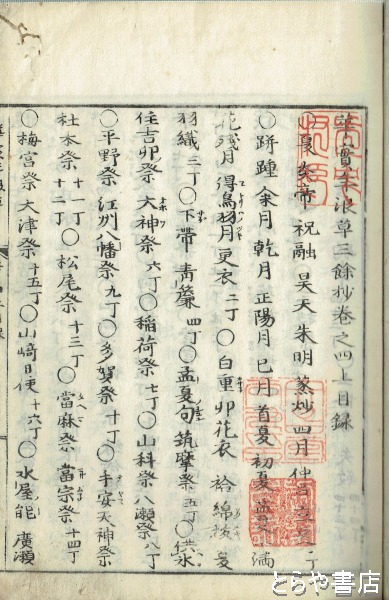 華實年浪草三餘抄巻之四上目録
炎帝 祝融 昊天 朱明 蒸炒 四月 仲呂
〇跰踵 余月 乾月 正陽月 巳月 首夏 初夏 孟夏 小満
花残月 得鳥羽月 更衣 二丁 〇白重 卯花衣 袷 綿抜 夏
羽織 三丁 〇下帯 青簾 四丁 〇孟夏旬 筑摩祭 五丁 〇供氷
住吉卯祭 大神祭 六丁 〇稲荷祭 七丁 〇山科祭 八瀬祭 八丁
〇平野祭 江州八幡祭 九丁 〇多賀祭 十丁 〇平安天神祭
杜本祭 十一丁 十二丁 〇松尾祭 十三丁 〇當麻祭 當宗祭 十四丁
〇梅宮祭 大津祭 十五丁 〇山﨑日使 十六丁 〇水屋能 廣瀬
とらや書店